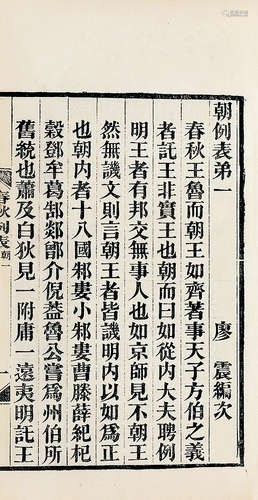 朝例表弟一
廖震編次
春秋王魯而朝王如齊著事天子方伯之義
者託王非實王也朝而曰如從內大夫聘例
明王者有邦交無事人也如京師見不朝王
然無譏文則言朝王者皆譏明內以如為正
也朝內者十八國邾婁小邾婁曹滕薛紀杞
穀鄧牟葛郜郯鄫介倪葢魯公嘗為州伯所
舊統也蕭及白狄見一附庸一遠夷明託王
春秋列表 朝一
一